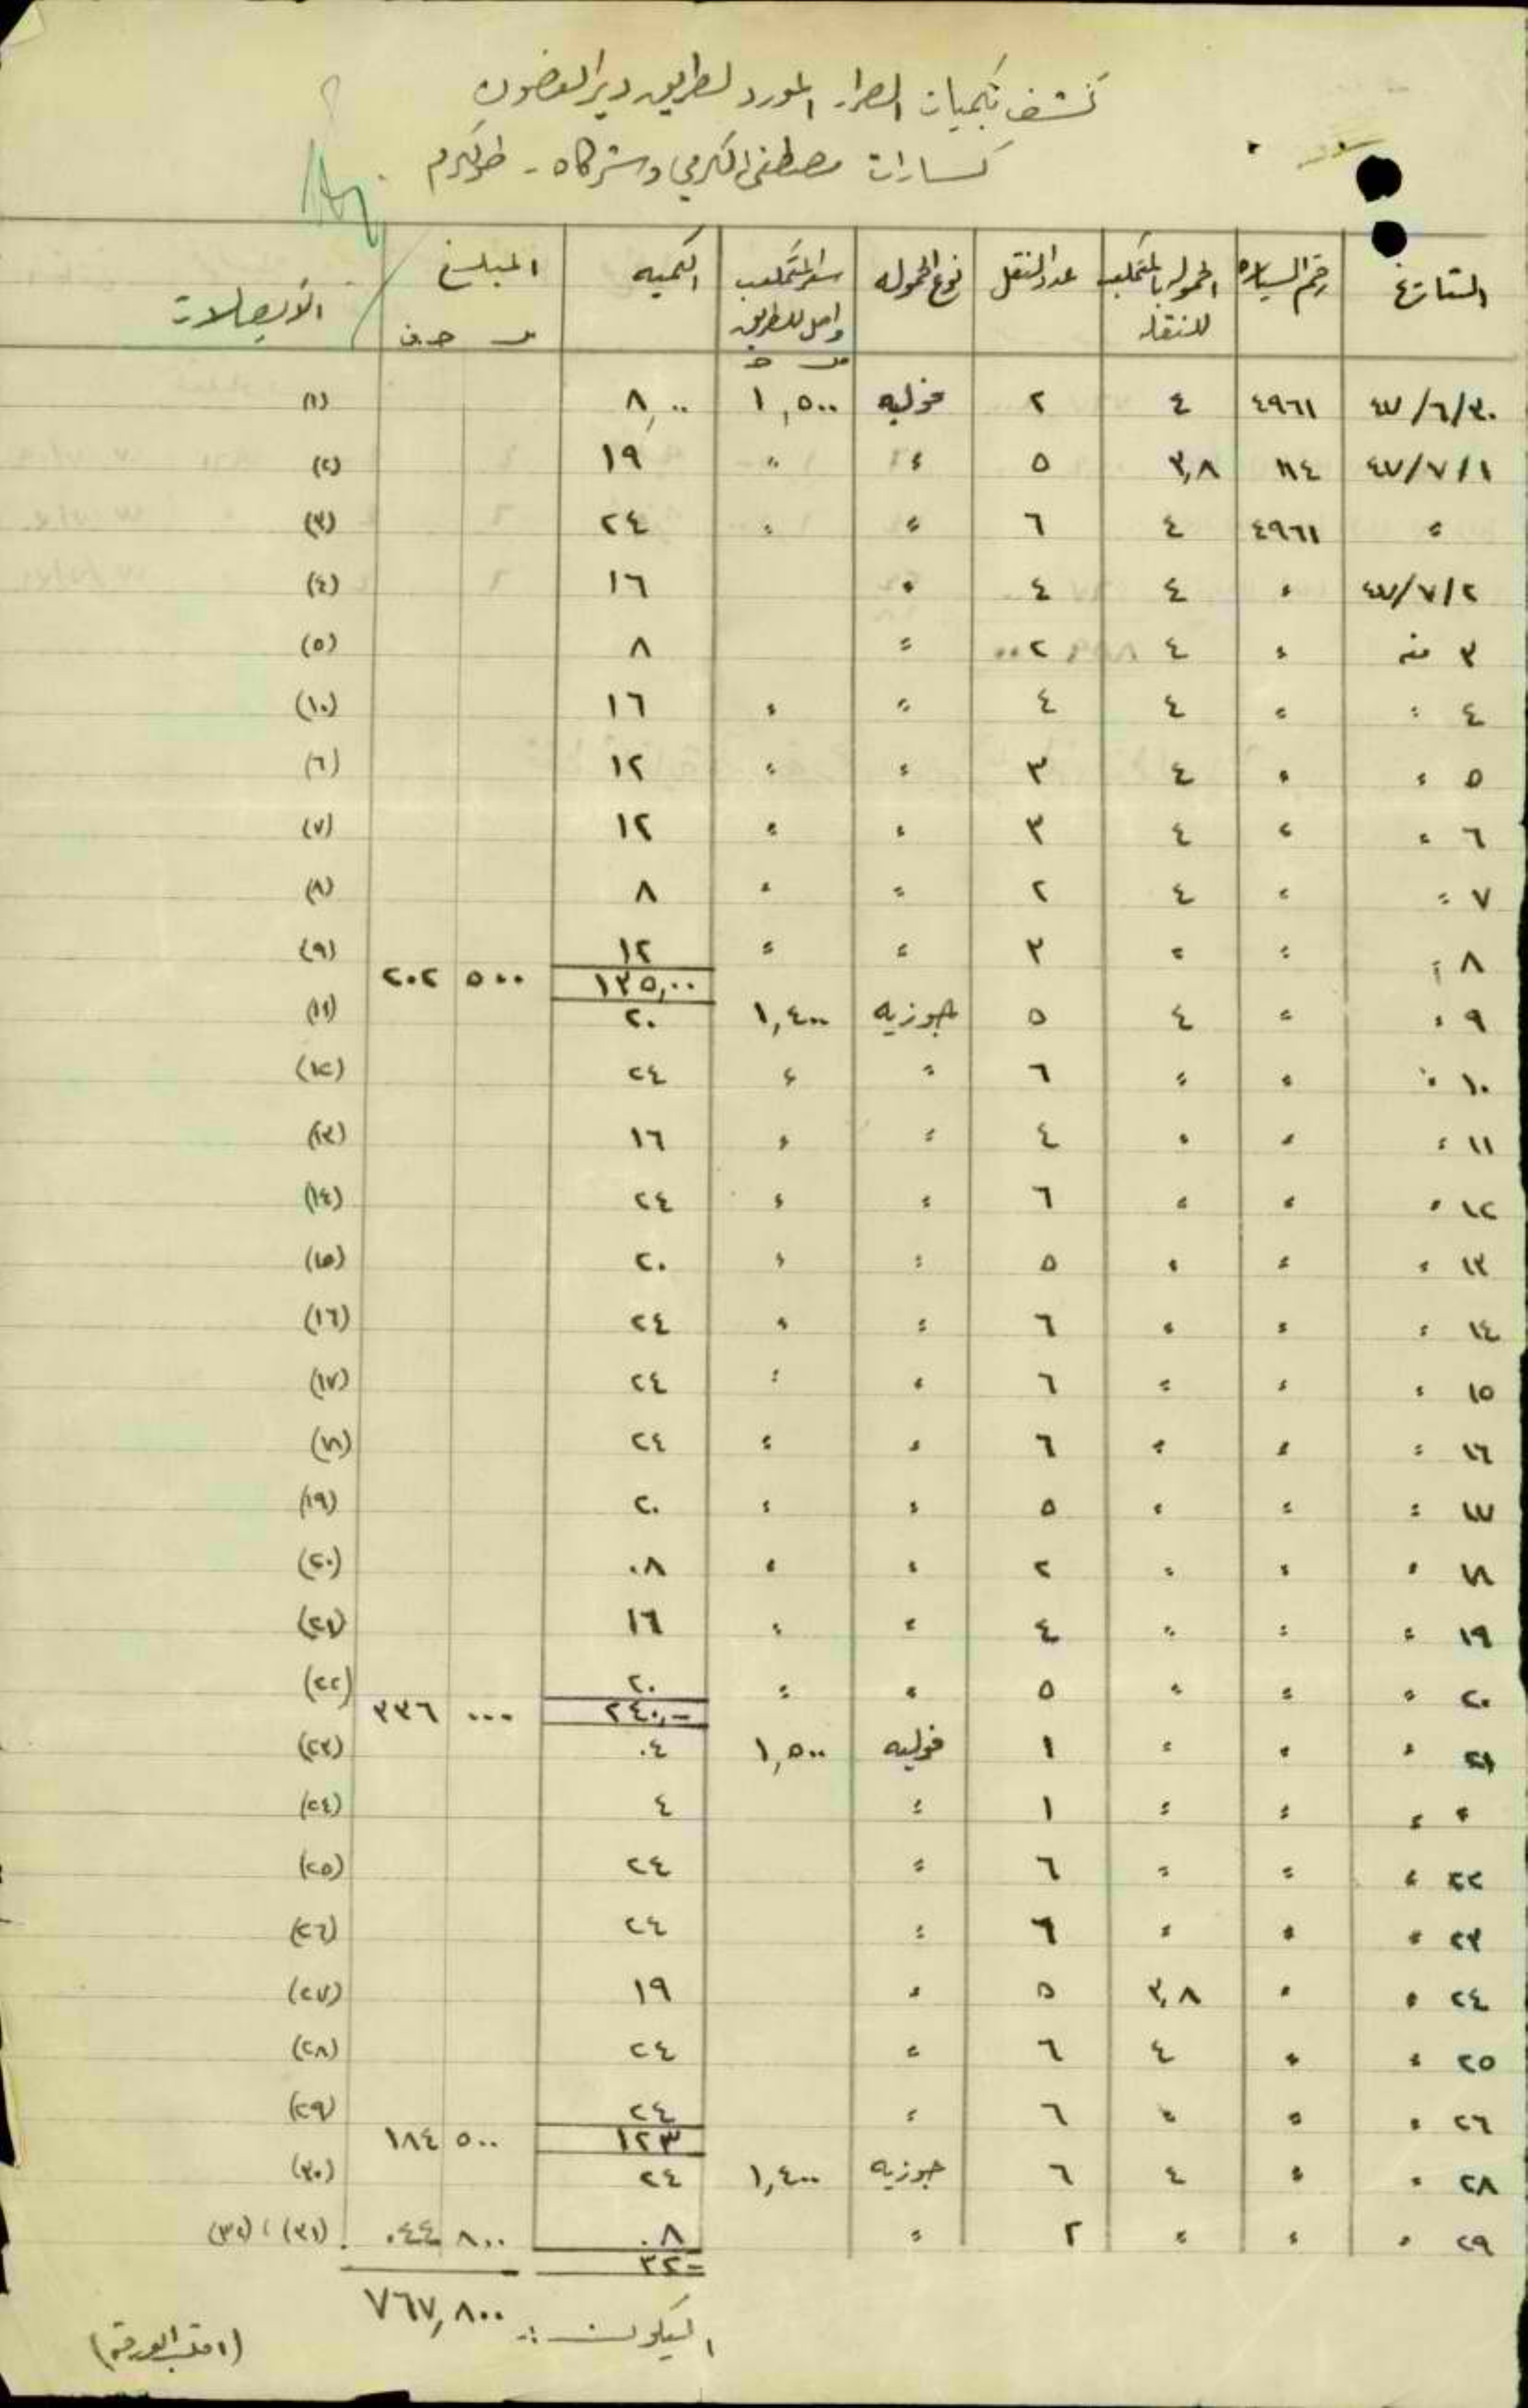 كشف بكميات الصرار المورد لطريق دير الغصون
كسارات مصطفى الكرمي وشركاه - طولكرم
التاريخ | رقم السياره | الحموله بالمتر مكعب للنقله | عدد النقل | نوع الحموله | سعر المتر مكعب واصل للطريق | الكميه | المبلغ | الايصالات
٤٧/٦/٣٠ | ٤٩٦١ | ٤ | ٢ | فوليه | ١,٥٠٠ | ٨,٠٠ | (١)
٤٧/٧/١ | ١١٤ | ٣,٨ | ٥ | " | " | ١٩ | (٢)
" | ٤٩٦١ | ٤ | ٦ | " | " | ٢٤ | (٣)
٤٧/٧/٢ | " | ٤ | ٤ | " | ١٦ | (٤)
٣ منه | " | ٤ | ٢ | " | ٨ | (٥)
٤ " | " | ٤ | ٤ | " | " | ١٦ | (١٠)
٥ " | " | ٤ | ٣ | " | " | ١٢ | (٦)
٦ " | " | ٤ | ٣ | " | " | ١٢ | (٧)
٧ " | " | ٤ | ٢ | " | " | ٨ | (٨)
٨ " | " | " | ٣ | " | " | ١٢ | (٩)
١٣٥,٠٠ | ٥٠٠ ٢٠٢
٩ " | " | ٤ | ٥ | جوزيه | ١,٤٠٠ | ٢٠ | (١١)
١٠ " | " | " | ٦ | " | " | ٢٤ | (١٢)
١١ " | " | " | ٤ | " | " | ١٦ | (١٣)
١٢ " | " | " | ٦ | " | " | ٢٤ | (١٤)
١٣ " | " | " | ٥ | " | " | ٢٠ | (١٥)
١٤ " | " | " | ٦ | " | " | ٢٤ | (١٦)
١٥ " | " | " | ٦ | " | " | ٢٤ | (١٧)
١٦ " | " | " | ٦ | " | " | ٢٤ | (١٨)
١٧ " | " | " | ٥ | " | " | ٢٠ | (١٩)
١٨ " | " | " | ٢ | " | " | ٠٨ | (٢٠)
١٩ " | " | " | ٤ | " | " | ١٦ | (٢١)
٢٠ " | " | " | ٥ | " | " | ٢٠ | (٢٢)
٢٤٠,- | ٠٠٠ ٣٣٦
٢١ " | " | " | ١ | فوليه | ١,٥٠٠ | ٠٤ | (٢٣)
" " | " | " | ١ | " | ٤ | (٢٤)
٢٢ " | " | " | ٦ | " | ٢٤ | (٢٥)
٢٣ " | " | " | ٦ | " | ٢٤ | (٢٦)
٢٤ " | " | ٣,٨ | ٥ | " | ١٩ | (٢٧)
٢٥ " | " | ٤ | ٦ | " | ٢٤ | (٢٨)
٢٦ " | " | " | ٦ | " | ٢٤ | (٢٩)
١٢٣ | ٥٠٠ ١٨٤
٢٨ " | " | ٤ | ٦ | جوزيه | ١,٤٠٠ | ٢٤ | (٣٠)
٢٩ " | " | " | ٢ | " | ٠٨ | ٨٠٠ ٠٤٤ | (٣١) ، (٣٢)
٣٢=
اليكون :- ٧٦٧,٨٠٠
(اقلب الورقة)